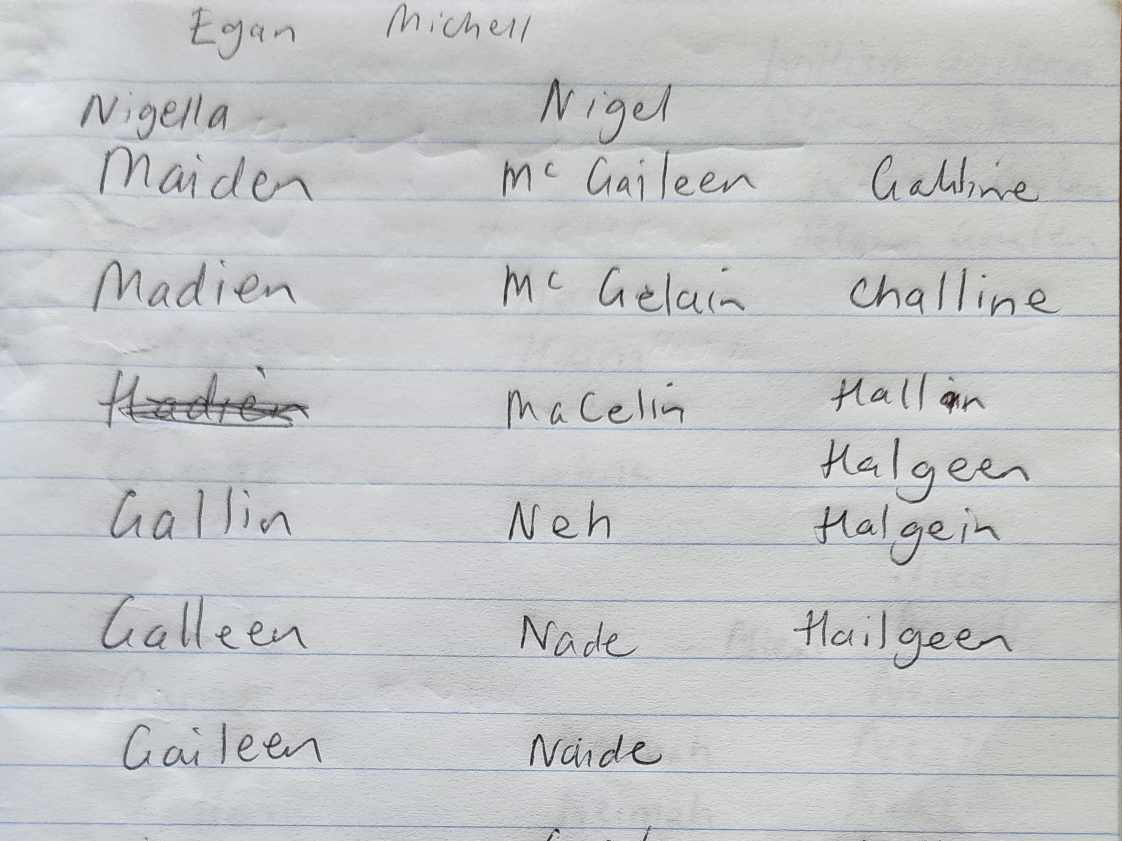 Egan Michell
Nigella Nigel
Maiden Mc Gaileen
Madien Mc Gelain Challine
Hadien MaCelin Hallin
Halgeen
Gallin Neh Halgein
Galleen Nade Hailgeen
Gaileen Naide